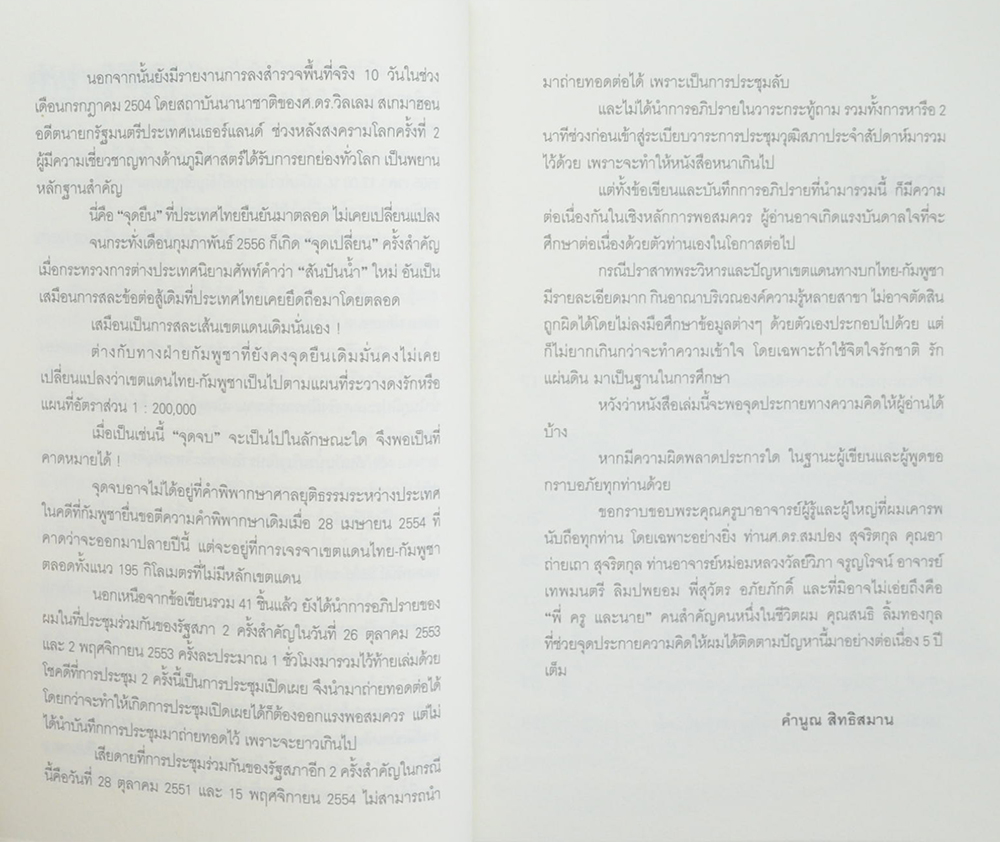 นอกจากนั้นยังมีรายงานการลงสำรวจพื้นที่จริง 10 วันในช่วง
เดือนกรกฎาคม 2504 โดยสถาบันนานาชาติของศ.ดร.วิลเลม สเกมาฮอน
อดีตนายกรัฐมนตรีประเทศเนเธอร์แลนด์ ช่วงหลังสงครามโลกครั้งที่ 2
ผู้มีความเชี่ยวชาญทางด้านภูมิศาสตร์ได้รับการยกย่องทั่วโลก เป็นพยาน
หลักฐานสำคัญ
นี่คือ “จุดยืน” ที่ประเทศไทยยืนยันมาตลอด ไม่เคยเปลี่ยนแปลง
จนกระทั่งเดือนกุมภาพันธ์ 2556 ก็เกิด “จุดเปลี่ยน” ครั้งสำคัญ
เมื่อกระทรวงการต่างประเทศนิยามศัพท์คำว่า “สันปันน้ำ” ใหม่ อันเป็น
เสมือนการสละข้อต่อสู้เดิมที่ประเทศไทยเคยยึดถือมาโดยตลอด
เสมือนเป็นการสละเส้นเขตแดนเดิมนั่นเอง !
ต่างกับทางฝ่ายกัมพูชาที่ยังคงจุดยืนเดิมมั่นคงไม่เคย
เปลี่ยนแปลงว่าเขตแดนไทย-กัมพูชาเป็นไปตามแผนที่ระวางดงรักหรือ
แผนที่อัตราส่วน 1 : 200,000
เมื่อเป็นเช่นนี้ “จุดจบ” จะเป็นไปในลักษณะใด จึงพอเป็นที่
คาดหมายได้ !
จุดจบอาจไม่ได้อยู่ที่คำพิพากษาศาลยุติธรรมระหว่างประเทศ
ในคดีที่กัมพูชายื่นขอตีความคำพิพากษาเดิมเมื่อ 28 เมษายน 2554 ที่
คาดว่าจะออกมาปลายปีนี้ แต่จะอยู่ที่การเจรจาเขตแดนไทย-กัมพูชา
ตลอดทั้งแนว 195 กิโลเมตรที่ไม่มีหลักเขตแดน
นอกเหนือจากข้อเขียนรวม 41 ชิ้นแล้ว ยังได้นำการอภิปรายของ
ผมในที่ประชุมร่วมกันของรัฐสภา 2 ครั้งสำคัญในวันที่ 26 ตุลาคม 2553
และ 2 พฤศจิกายน 2553 ครั้งละประมาณ 1 ชั่วโมงมารวมไว้ท้ายเล่มด้วย
โชคดีที่การประชุม 2 ครั้งนี้เป็นการประชุมเปิดเผย จึงนำมาถ่ายทอดต่อได้
โดยกว่าจะทำให้เกิดการประชุมเปิดเผยได้ก็ต้องออกแรงพอสมควร แต่ไม่
ได้นำบันทึกการประชุมมาถ่ายทอดไว้ เพราะจะยาวเกินไป
เสียดายที่การประชุมร่วมกันของรัฐสภาอีก 2 ครั้งสำคัญในกรณี
นี้คือวันที่ 28 ตุลาคม 2551 และ 15 พฤศจิกายน 2554 ไม่สามารถนำ
มาถ่ายทอดต่อได้ เพราะเป็นการประชุมลับ
และไม่ได้นำการอภิปรายในวาระกระทู้ถาม รวมทั้งการหารือ 2
นาทีช่วงก่อนเข้าสู่ระเบียบวาระการประชุมวุฒิสภาประจำสัปดาห์มารวม
ไว้ด้วย เพราะจะทำให้หนังสือหนาเกินไป
แต่ทั้งข้อเขียนและบันทึกการอภิปรายที่นำมารวมนี้ ก็มีความ
ต่อเนื่องกันในเชิงหลักการพอสมควร ผู้อ่านอาจเกิดแรงบันดาลใจที่จะ
ศึกษาต่อเนื่องด้วยตัวท่านเองในโอกาสต่อไป
กรณีปราสาทพระวิหารและปัญหาเขตแดนทางบกไทย-กัมพูชา
มีรายละเอียดมาก กินอาณาบริเวณองค์ความรู้หลายสาขา ไม่อาจตัดสิน
ถูกผิดได้โดยไม่ลงมือศึกษาข้อมูลต่างๆ ด้วยตัวเองประกอบไปด้วย แต่
ก็ไม่ยากเกินกว่าจะทำความเข้าใจ โดยเฉพาะถ้าใช้จิตใจรักชาติ รัก
แผ่นดิน มาเป็นฐานในการศึกษา
หวังว่าหนังสือเล่มนี้จะพอจุดประกายทางความคิดให้ผู้อ่านได้
บ้าง
หากมีความผิดพลาดประการใด ในฐานะผู้เขียนและผู้พูดขอ
กราบอภัยทุกท่านด้วย
ขอกราบขอบพระคุณครูบาอาจารย์ผู้รู้และผู้ใหญ่ที่ผมเคารพ
นับถือทุกท่าน โดยเฉพาะอย่างยิ่ง ท่านศ.ดร.สมปอง สุจริตกุล คุณอา
ถ่ายเถา สุจริตกุล ท่านอาจารย์หม่อมหลวงวัลย์วิภา จรูญโรจน์ อาจารย์
เทพมนตรี ลิมปพยอม พี่สุวัตร อภัยภักดิ์ และที่มิอาจไม่เอ่ยถึงคือ
“พี่ ครู และนาย” คนสำคัญคนหนึ่งในชีวิตผม คุณสนธิ ลิ้มทองกุล
ที่ช่วยจุดประกายความคิดให้ผมได้ติดตามปัญหานี้มาอย่างต่อเนื่อง 5 ปี
เต็ม
คำนูณ สิทธิสมาน